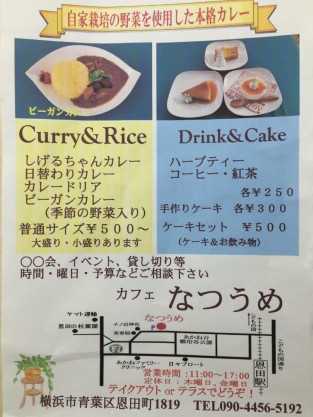 自家栽培の野菜を使用した本格カレー
ビーガンカレー
Curry&Rice
しげるちゃんカレー
日替わりカレー
カレードリア
ビーガンカレー
(季節の野菜入り)
普通サイズ¥500〜
大盛り・小盛りあります
Drink&Cake
ハーブティー
コーヒー・紅茶
各¥250
手作りケーキ 各¥300
ケーキセット ¥500
(ケーキ&お飲み物)
〇〇会、イベント、貸し切り等
時間・曜日・予算などご相談下さい
カフェ なつうめ
ヤマト運輸
恩田の
子ノ辺神社
なつうめ
P
あかね台
こどもの国
こどもの国線
恩田駅
あかねファミリー
クリニック
日々ブロート
営業時間:11:00〜17:00
定休日:木曜日、金曜日
テイクアウト or テラスでどうぞ!
横浜市青葉区恩田町1819 TEL090-4456-5192